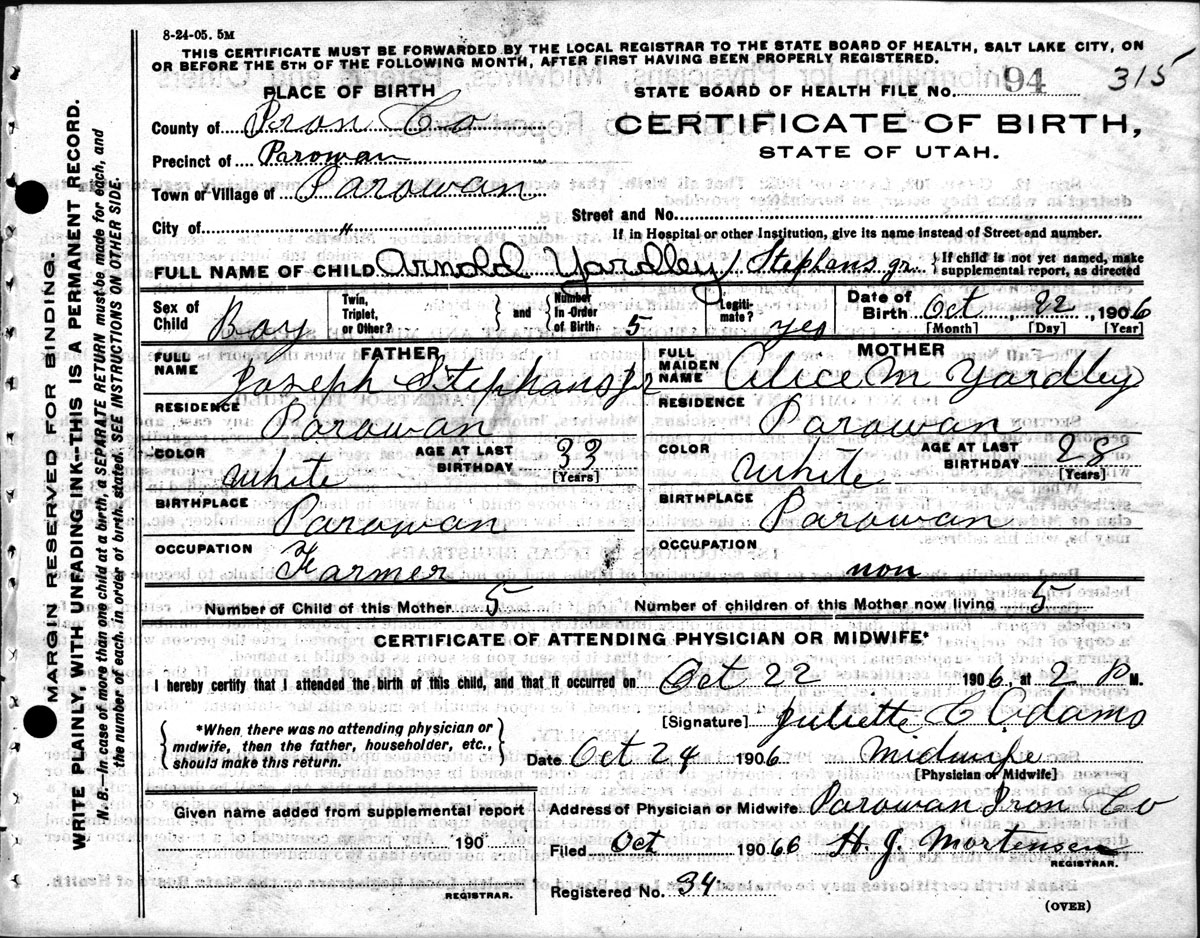 8-24-05. 5M
THIS CERTIFICATE MUST BE FORWARDED BY THE LOCAL REGISTRAR TO THE STATE BOARD OF HEALTH, SALT LAKE CITY, ON
OR BEFORE THE 5TH OF THE FOLLOWING MONTH, AFTER FIRST HAVING BEEN PROPERLY REGISTERED.
PLACE OF BIRTH
STATE BOARD OF HEALTH FILE NO. 94 315
County of Iron Co
CERTIFICATE OF BIRTH,
Precinct of Parowan
STATE OF UTAH.
Town or Village of Parowan
Street and No.
City of "
If in Hospital or other Institution, give its name instead of Street and number.
FULL NAME OF CHILD Arnold Yardley Stephens jr. { If child is not yet named, make supplemental report, as directed
Sex of Child Boy Twin, Triplet, or Other? } and { Number In Order of Birth 5 Legiti-mate? yes Date of Birth Oct 22 1906
[Month] [Day] [Year]
FATHER
FULL NAME Joseph Stephens Jr
RESIDENCE
Parowan
COLOR White AGE AT LAST BIRTHDAY 33
[Years]
BIRTHPLACE
Parowan
OCCUPATION
Farmer
MOTHER
FULL MAIDEN NAME Alice M Yardley
RESIDENCE
Parowan
COLOR White AGE AT LAST BIRTHDAY 28
[Years]
BIRTHPLACE
Parowan
OCCUPATION
non
Number of Child of this Mother 5 Number of children of this Mother now living 5
CERTIFICATE OF ATTENDING PHYSICIAN OR MIDWIFE*
I hereby certify that I attended the birth of this child, and that it occurred on Oct 22 1906, at 2 P M.
[Signature] Juliette C Adams
{ *When there was no attending physician or midwife, then the father, householder, etc., should make this return. }
Date Oct 24 1906 Midwife
[Physician or Midwife]
Given name added from supplemental report
190
REGISTRAR.
Address of Physician or Midwife Parowan Iron Co
Filed Oct 19066 H. J. Mortensen
REGISTRAR.
Registered No. 34
(OVER)
MARGIN RESERVED FOR BINDING.
WRITE PLAINLY, WITH UNFADING INK--THIS IS A PERMANENT RECORD.
N. B.--In case of more than one child at a birth, a SEPARATE RETURN must be made for each, and
the number of each, in order of birth, stated. SEE INSTRUCTIONS ON OTHER SIDE.